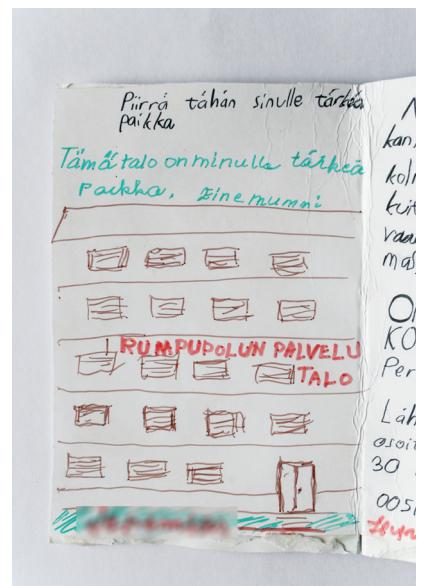 Piirrä tähän sinulle tärkeä
paikka
Tämä talo on minulle tärkeä
Paikka. Eine mummi
RUMPUPOLUN PALVELU
TALO
kan
kol
kuit
vaa
mas
KO
Per
Läh
osoit
30
005